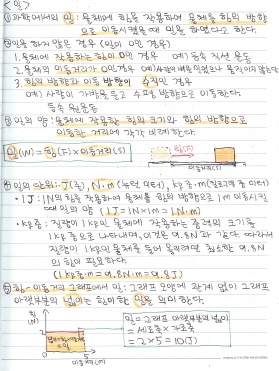 <일>
①과학에서의 일: 물체에 힘을 작용하여 물체를 힘의 방향
으로 이동시켰을 때 일을 하였다고 한다.
②일을 하지 않은 경우 (일이 0인 경우)
1. 물체에 작용하는 힘이 0인 경우 예) 등속 직선 운동
2. 물체의 이동거리가 0인 경우
3. 힘의 방향과 이동 방향이 수직인 경우
예) 사람이 가방을 들고 수평 방향으로 이동한다.
등속 원운동
③일의 양: 물체에 작용한 힘의 크기와 힘의 방향으로
이동한 거리에 각각 비례한다
일(W) = 힘(F) × 이동거리(S)
힘(F)
이동거리(S)
④일의 단위: J(줄), N·m (뉴턴 미터), kgf·m (킬로그램힘 미터)
• 1J: 1N의 힘을 작용하여 물체를 힘의 방향으로 1m 이동시킬
때의 일의 양 (1J = 1N × 1m = 1N·m)
질량이 1kg인 물체에 작용하는 중력의 크기를
9.8N과 같다. 따라서
질량이 1kg인 물체를 들어 올리려면 최소한 9.8N
의 힘이 필요하다.
(1kgf·m = 9.8N·m = 9.8J)
⑤힘-이동거리 그래프에서 일: 그래프 모양에 관계 없이 그래프
아랫부분의 넓이는 힘이 한 일을 의미한다.
힘
(N)
이동거리(m)
일 = 그래프 아랫부분의 넓이
= 세로축 × 가로축
= 2 × 5 = 10(J)